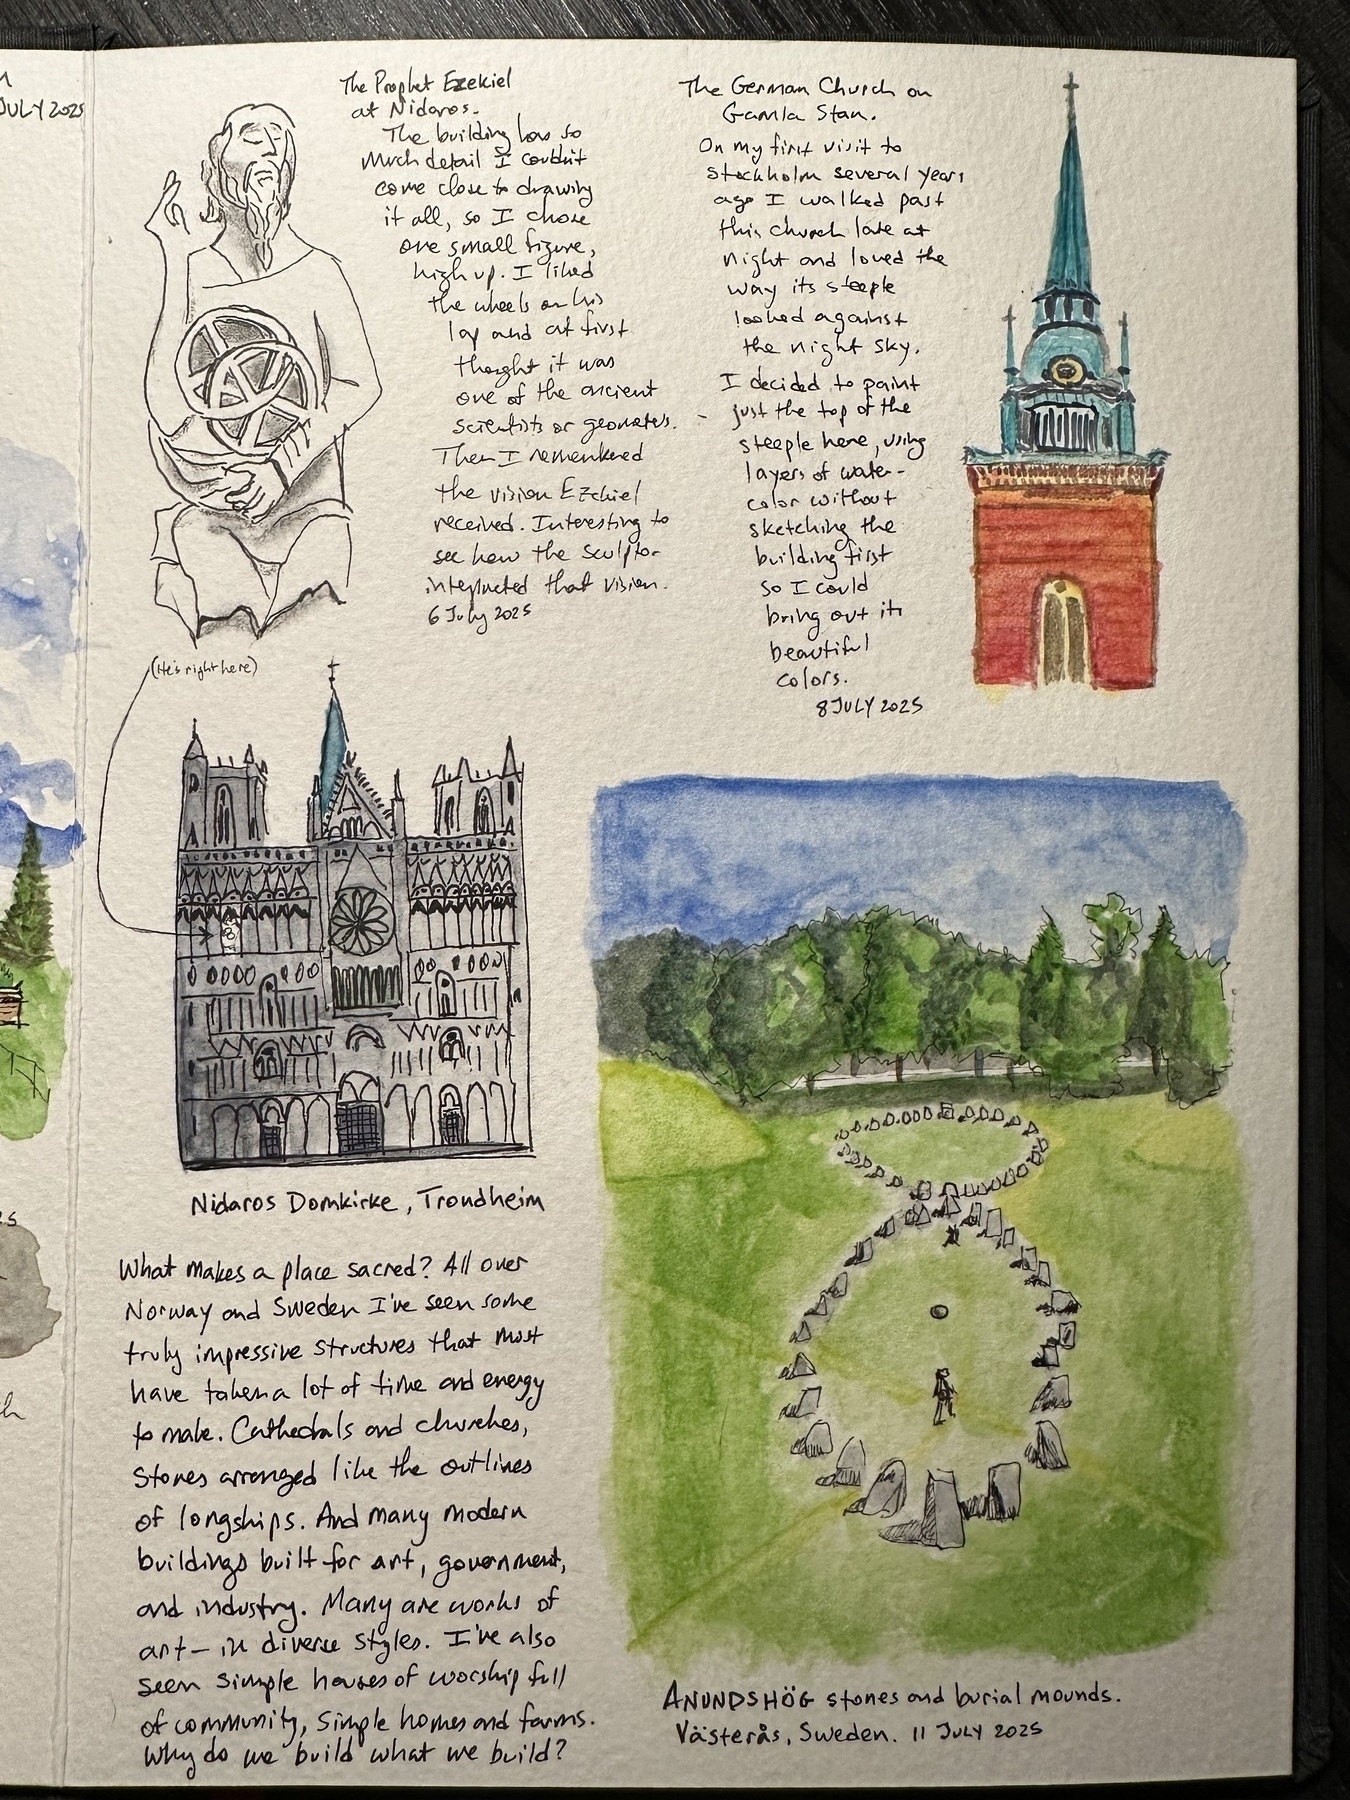 JULY 2025
The Prophet Ezekiel
at Nidaros.
The building has so
much detail I couldn't
come close to drawing
it all, so I chose
one small figure,
high up. I liked
the wheels on his
lap and at first
thought it was
one of the ancient
scientists or geometers.
Then I remembered
the vision Ezekiel
received. Interesting to
see how the sculptor
interpreted that vision.
6 July 2025
(He's right here)
Nidaros Domkirke, Trondheim
What makes a place sacred? All over
Norway and Sweden I've seen some
truly impressive structures that must
have taken a lot of time and energy
to make. Cathedrals and churches,
Stones arranged like the outlines
of longships. And many modern
buildings built for art, government,
and industry. Many are works of
art – in diverse styles. I've also
seen simple houses of worship full
of community, simple homes and farms.
Why do we build what we build?
The German Church on
Gamla Stan.
On my first visit to
Stockholm several years
ago I walked past
this church late at
night and loved the
way its steeple
looked against
the night sky.
I decided to paint
just the top of the
steeple here, using
layers of water-
color without
sketching the
building first
so I could
bring out its
beautiful
colors.
8 JULY 2025
ANUNDSHÖG stones and burial mounds.
Västerås, Sweden. 11 JULY 2025